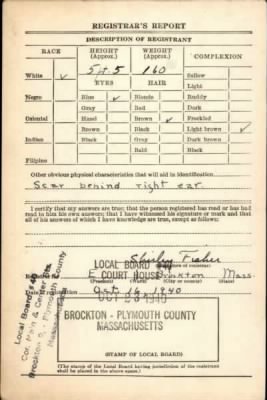 REGISTRAR'S REPORT
DESCRIPTION OF REGISTRANT
RACE HEIGHT (Approx.) WEIGHT (Approx.) COMPLEXION
White ✓ 5 ft 5 160 Sallow
EYES HAIR Light
Negro Blue ✓ Blonde Ruddy
Gray Red Dark
Oriental Hazel Brown ✓ Freckled
Brown Black Light brown ✓
Indian Black Gray Dark brown
Bald Black
Filipino
Other obvious physical characteristics that will aid in identification
Scar behind right ear
I certify that my answers are true; that the person registered has read or has had
read to him his own answers; that I have witnessed his signature or mark and that
all of his answers of which I have knowledge are true, except as follows:
Shirley Fisher
LOCAL BOARD
E COURT HOUSE Brockton Mass.
(Precinct) (City or county) (State)
Date of registration Oct 16 1940
BROCKTON - PLYMOUTH COUNTY
MASSACHUSETTS
Local Board
Cor. Main & Center
Brockton - Plymouth County
Massachusetts
(STAMP OF LOCAL BOARD)
(The stamp of the Local Board having jurisdiction of the registrant
shall be placed in the above space.)